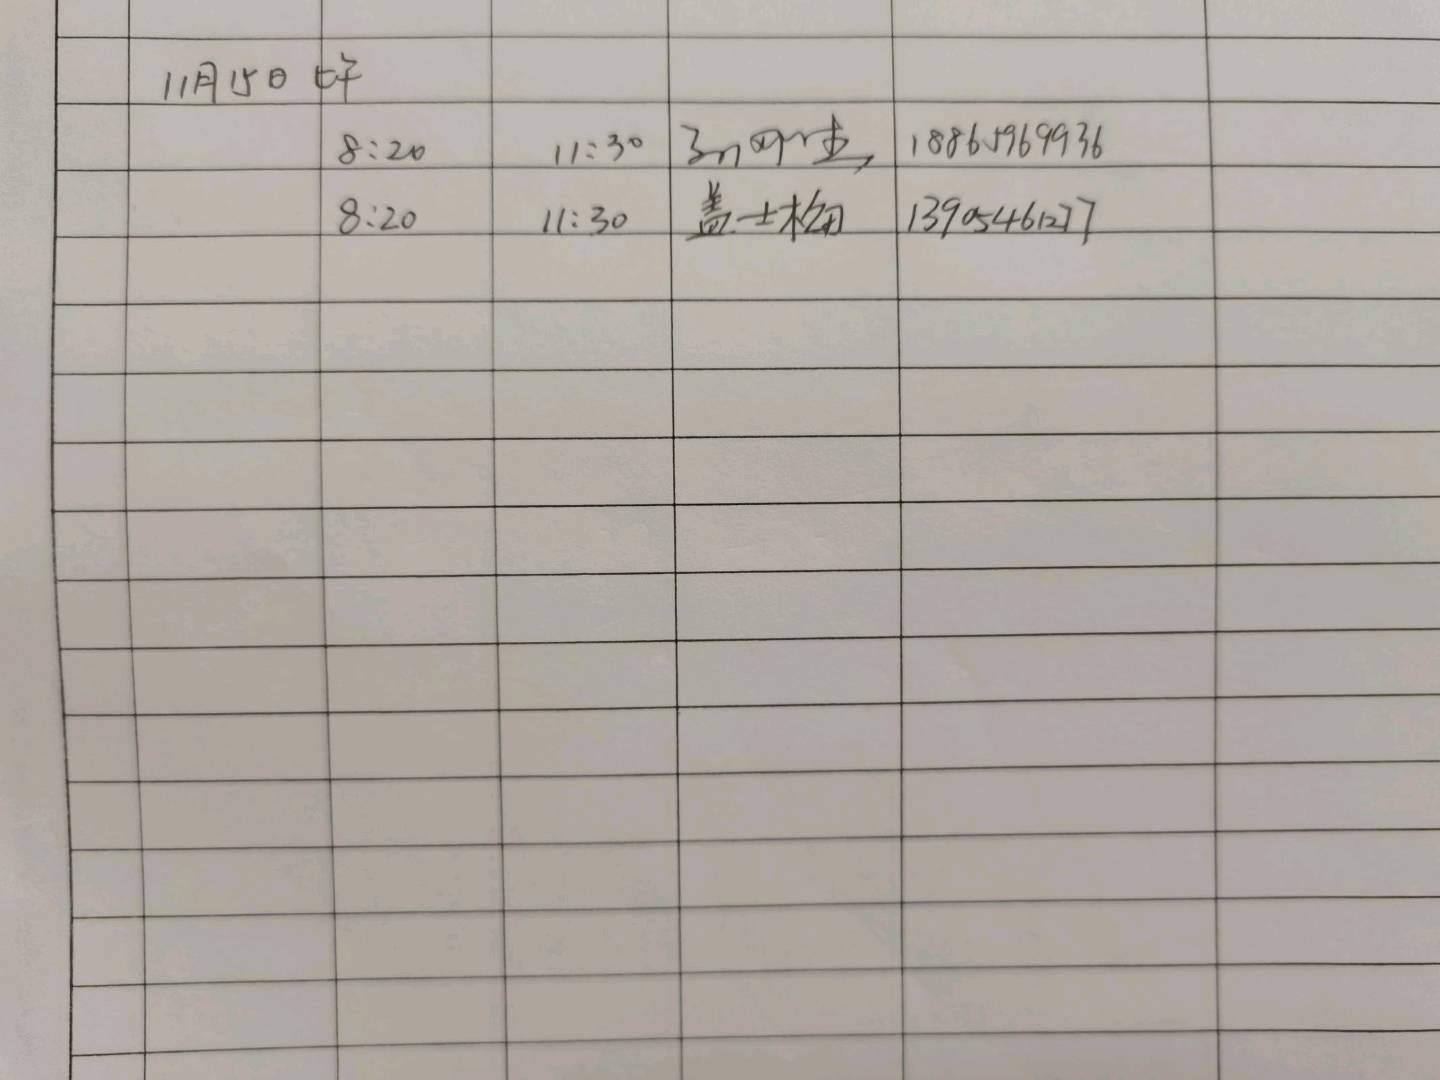 11月15日 上午
8:20 11:30 18865969936
8:20 11:30 盖士梅 13905461277